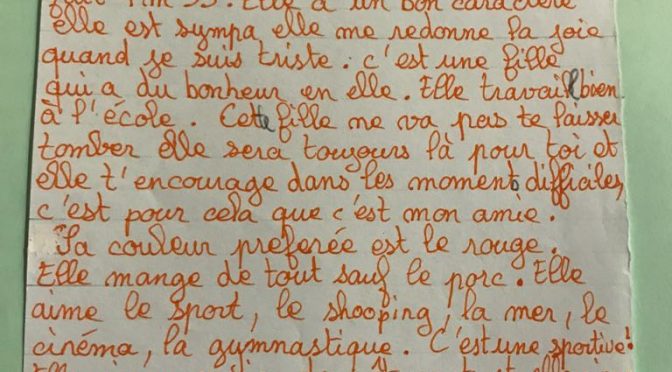 fait 1m 53. Elle a un bon caractère
elle est sympa elle me redonne la joie
quand je suis triste. c'est une fille
qui a du bonheur en elle. Elle travaille bien
à l'école. Cette fille ne va pas te laisser
tomber elle sera toujours là pour toi et
elle t'encourage dans les moments difficiles,
c'est pour cela que c'est mon amie.
Sa couleur preferée est le rouge.
Elle mange de tout sauf le porc. Elle
aime le sport, le shooping, la mer, le
cinéma, la gymnastique. C'est une sportive!